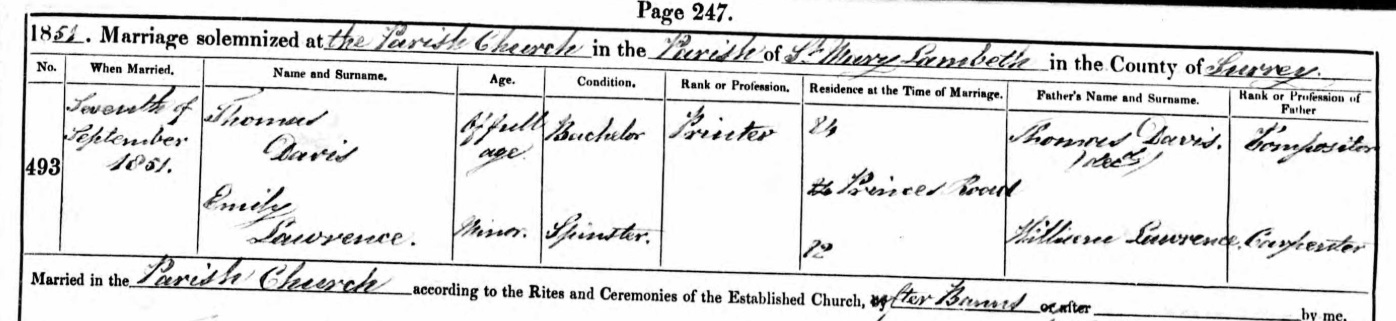 Page 247.
1851. Marriage solemnized at the Parish Church in the Parish of St Mary Lambeth in the County of Surrey.
No. When Married. Name and Surname. Age. Condition. Rank or Profession. Residence at the Time of Marriage. Father's Name and Surname. Rank or Profession of Father
493
Seventh of
September
1851.
Thomas
Davis
Of full
age
Bachelor
Printer
24
Princes Road
Thomas Davis.
(decd)
Compositor
Emily
Lawrence.
Minor.
Spinster.
12
William Lawrence.
Carpenter
Married in the Parish Church according to the Rites and Ceremonies of the Established Church, after Banns or after by me,